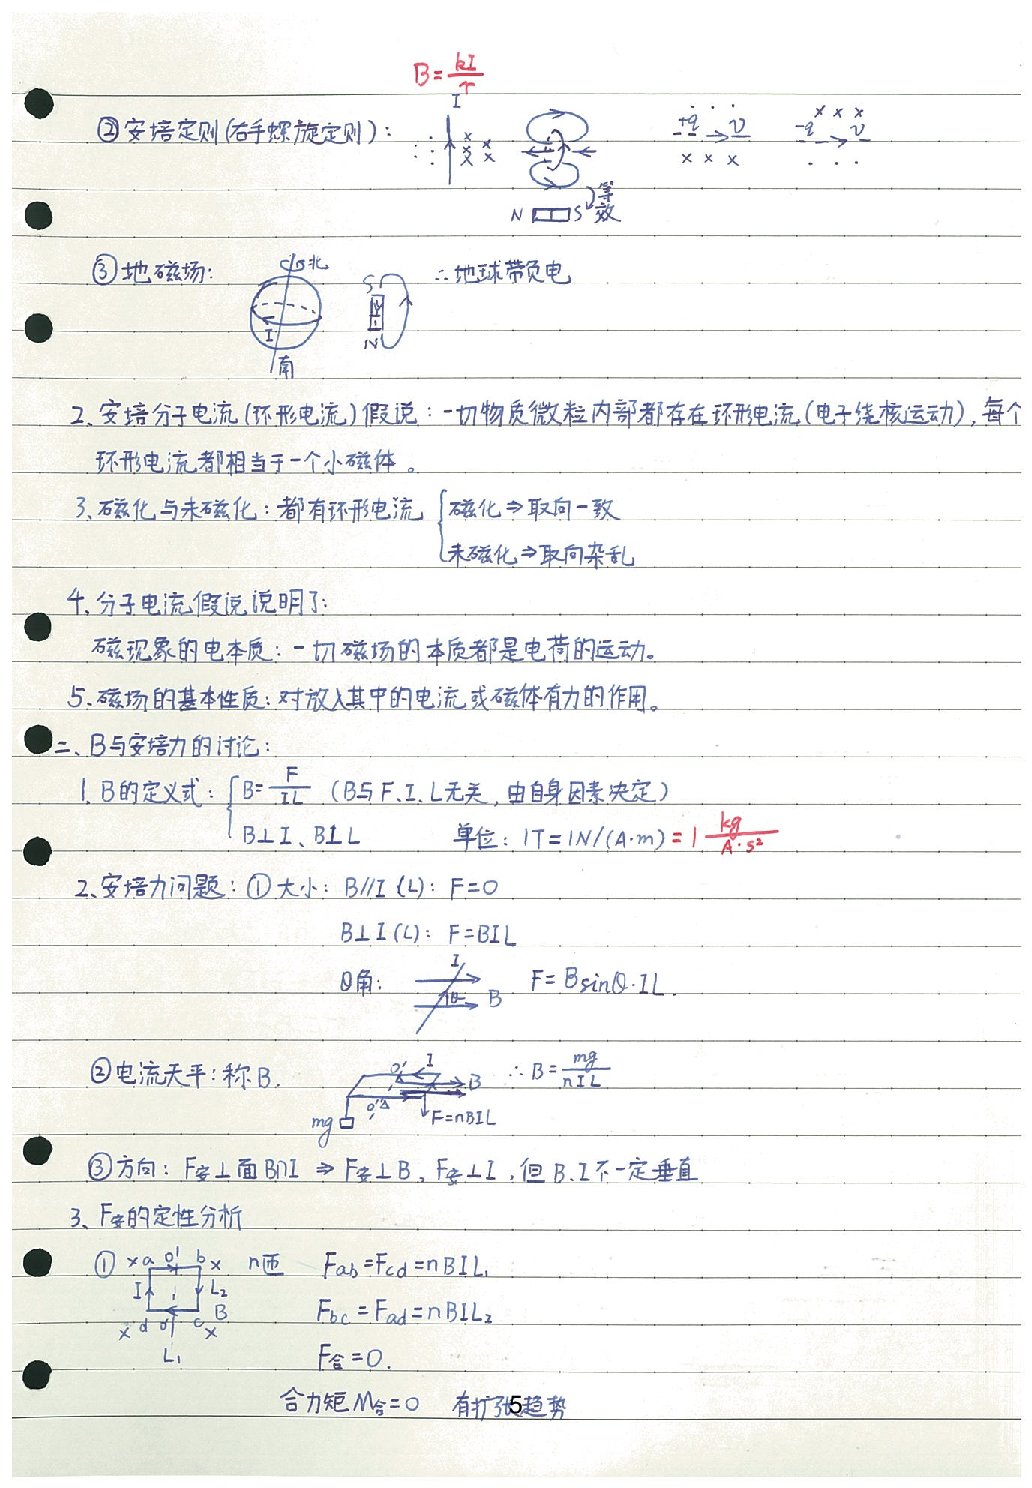 B=kI/r
②安培定则(右手螺旋定则): I +q v -q v
N S 等效
③地磁场: 北 I 南 S N ∴地球带负电
2、安培分子电流(环形电流)假说:一切物质微粒内部都存在环形电流(电子绕核运动),每个
环形电流都相当于一个小磁体。
3、磁化与未磁化:都有环形电流 { 磁化⇒取向一致
未磁化⇒取向杂乱
4、分子电流假说说明了:
磁现象的电本质:一切磁场的本质都是电荷的运动。
5、磁场的基本性质:对放入其中的电流或磁体有力的作用。
二、B与安培力的讨论:
1、B的定义式: { B=F/IL (B与F、I、L无关,由自身因素决定)
B⊥I、B⊥L 单位: 1T=1N/(A·m)=1 kg/A·s²
2、安培力问题:①大小: B∥I (L): F=0
B⊥I(L): F=BIL
θ角: I θ B F=Bsinθ·IL.
②电流天平:称B. O' I B O' mg F=nBIL ∴B=mg/nIL
③方向: F安⊥面B∩I ⇒ F安⊥B, F安⊥I ,但B、I不一定垂直
3、F安的定性分析
① × a O' b × n匝 Fab=Fcd=nBIL₁
I L₂ B × d O' c × Fbc=Fad=nBIL₂
L₁ F合=0.
合力矩M合=0 有扩张趋势
5